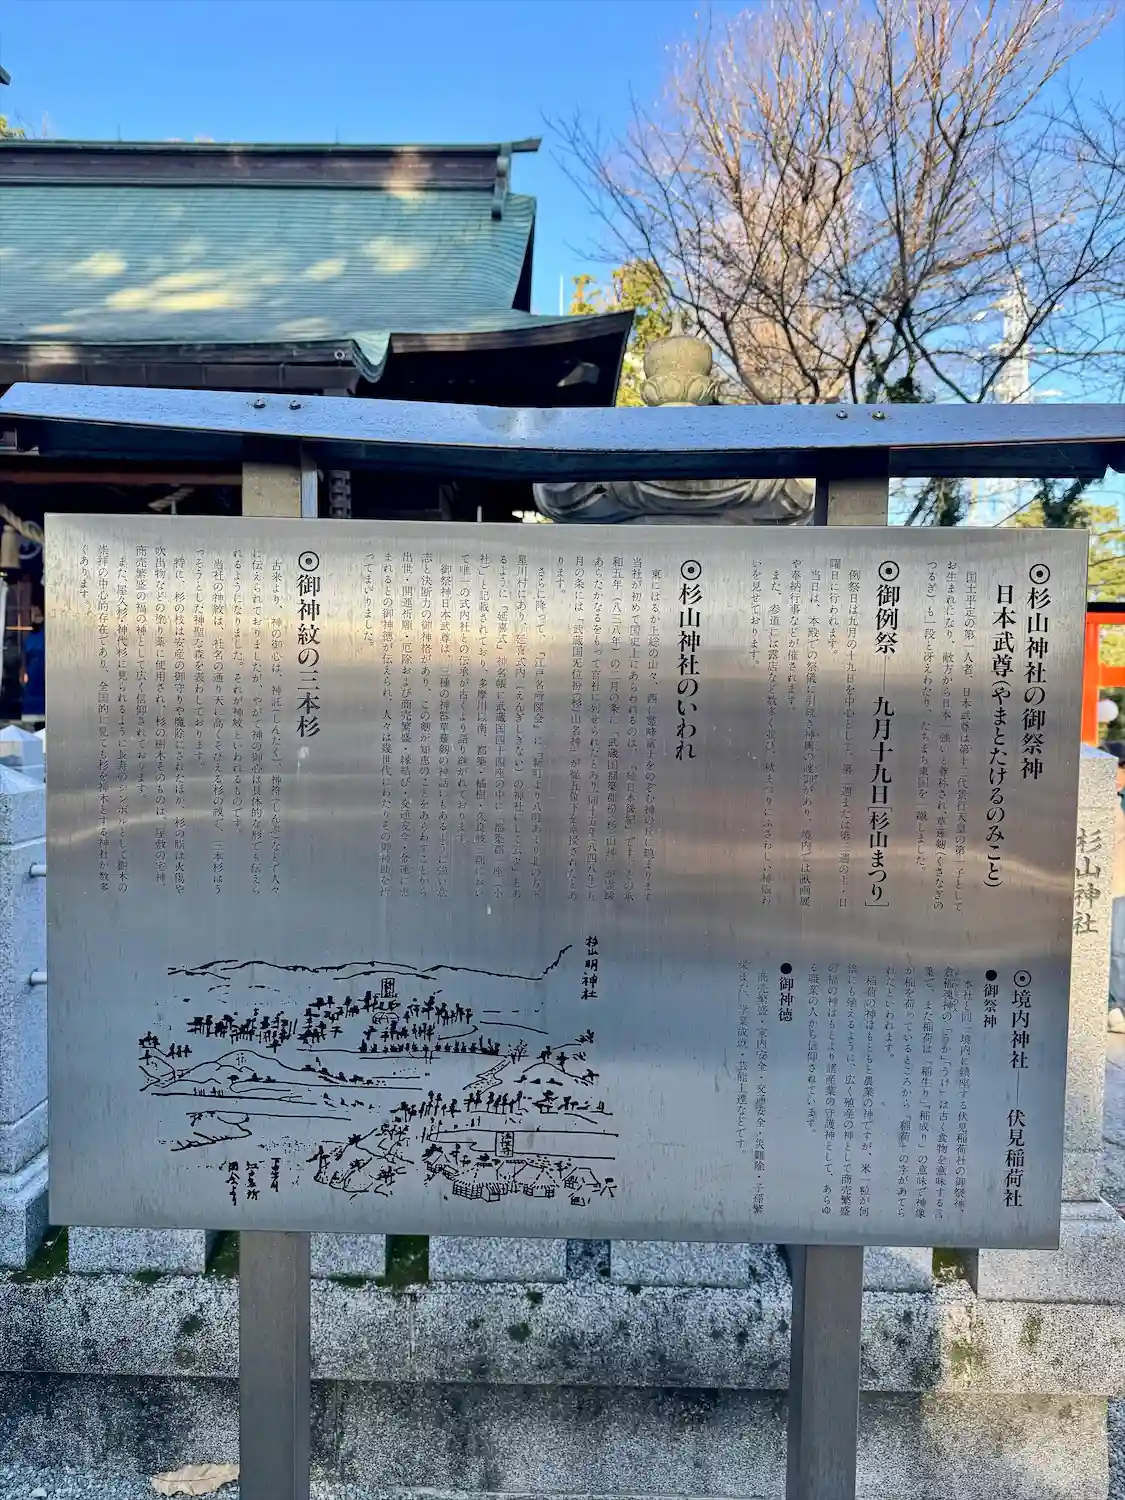 ◉杉山神社の御祭神
日本武尊(やまとたけるのみこと)
国土平定の第一人者、日本武尊は第十二代景行天皇の第二子として
お生まれになり、敵方から日本一強いと尊称され、草薙劔(くさなぎの
つるぎ)も一段と冴えわたり、たちまち東国を平蹴しました。
◉御例祭――九月十九日[杉山まつり]
例祭日は九月の十九日を中心として、第二週または第三週の土・日
曜日に行われます。
当日は、本殿での祭儀に引続き神輿の渡御があり、境内では献画展
や奉納行事などが催されます。
また、参道には露店など数多く並び、秋まつりにふさわしい神賑わ
いを見せております。
◉杉山神社のいわれ
東にはるか上総の山々、西に霊峰富士をのぞむ神の丘に鎮まります
当社が初めて国史上にあらわれるのは、「続日本後紀」です。その承
和五年(八三八年)の二月の条に「武蔵国都築郡杉山神」が霊験
あらたかなるをもって官社に列せられたとあり、同十五年(八四八年)五
月の条には「武蔵国无位枌(杉)山名神」が従五位下を奉授されたとあ
ります。
さらに降って、『江戸名所図会』に「新町より八町あまり北の方下
星川村にあり。延喜式内(えんぎしきない)の神社にして云々」とあ
るように『延喜式』神名帳に武蔵国四十四座の中に「都筑郡一座(小
社)」と記載されており、多摩川以南、都築・橘樹・久良岐三郡におい
て唯一の式内社との伝承が古くより語り継がれております。
御祭神日本武尊は、三種の神器草薙劔の神話にもあるように強い意
志と決断力の御神格があり、この劔が知恵のことをあらわすことから
出世・開運祈願・厄除および商売繁盛・縁結び・交通安全・金運に恵
まれるとの御神徳が伝えられ、人々は幾世代にわたりその御神助を仰
ってまいりました。
◉御神紋の三本杉
古来より、神の御心は、神託(しんたく)、神符(しんぷ)などで人々
に伝えられておりましたが、やがて神の御心は具体的な形でも伝えら
れるようになりました。それが神紋といわれるものです。
当社の神紋は、社名の通り天に高くそびえる杉の茂で、三本杉はう
っそうとした神聖な森を表わしております。
特に、杉の枝は安産の御守りや魔除にされたほか、杉の脂は火傷や
吹出物などの塗り薬に使用され、杉の樹木そのものは、屋敷の宅神、
商売繁盛の福の神として広く信仰されております。
また、屋久杉・神代杉に見られるように長寿のシンボルとして樹木の
崇拝の中心的存在であり、全国的に見ても杉を神木とする神社が数多
くあります。
◉境内神社――伏見稲荷社
●御祭神
本社と同一境内に鎮座する伏見稲荷社の御祭神、
倉稲魂神の「うか」「うけ」は古く食物を意味する言
葉で、また稲荷は「稲生り」「稲成り」の意味で神像
が稲を荷っているところから「稲荷」の字があてら
れたといわれます。
稲荷の神はもともと農業の神ですが、米一粒が何
倍にも殖えるように、広く殖産の神として商売繁盛
の福の神はもとより諸産業の守護神として、あらゆ
る職業の人から信仰されています。
●御神徳
商売繁盛・家内安全・交通安全・災難除・子孫繁
栄また、学業成就・芸能上達などです。
杉山明神社
法性寺
下星川
江戸名所
図会より
杉山神社